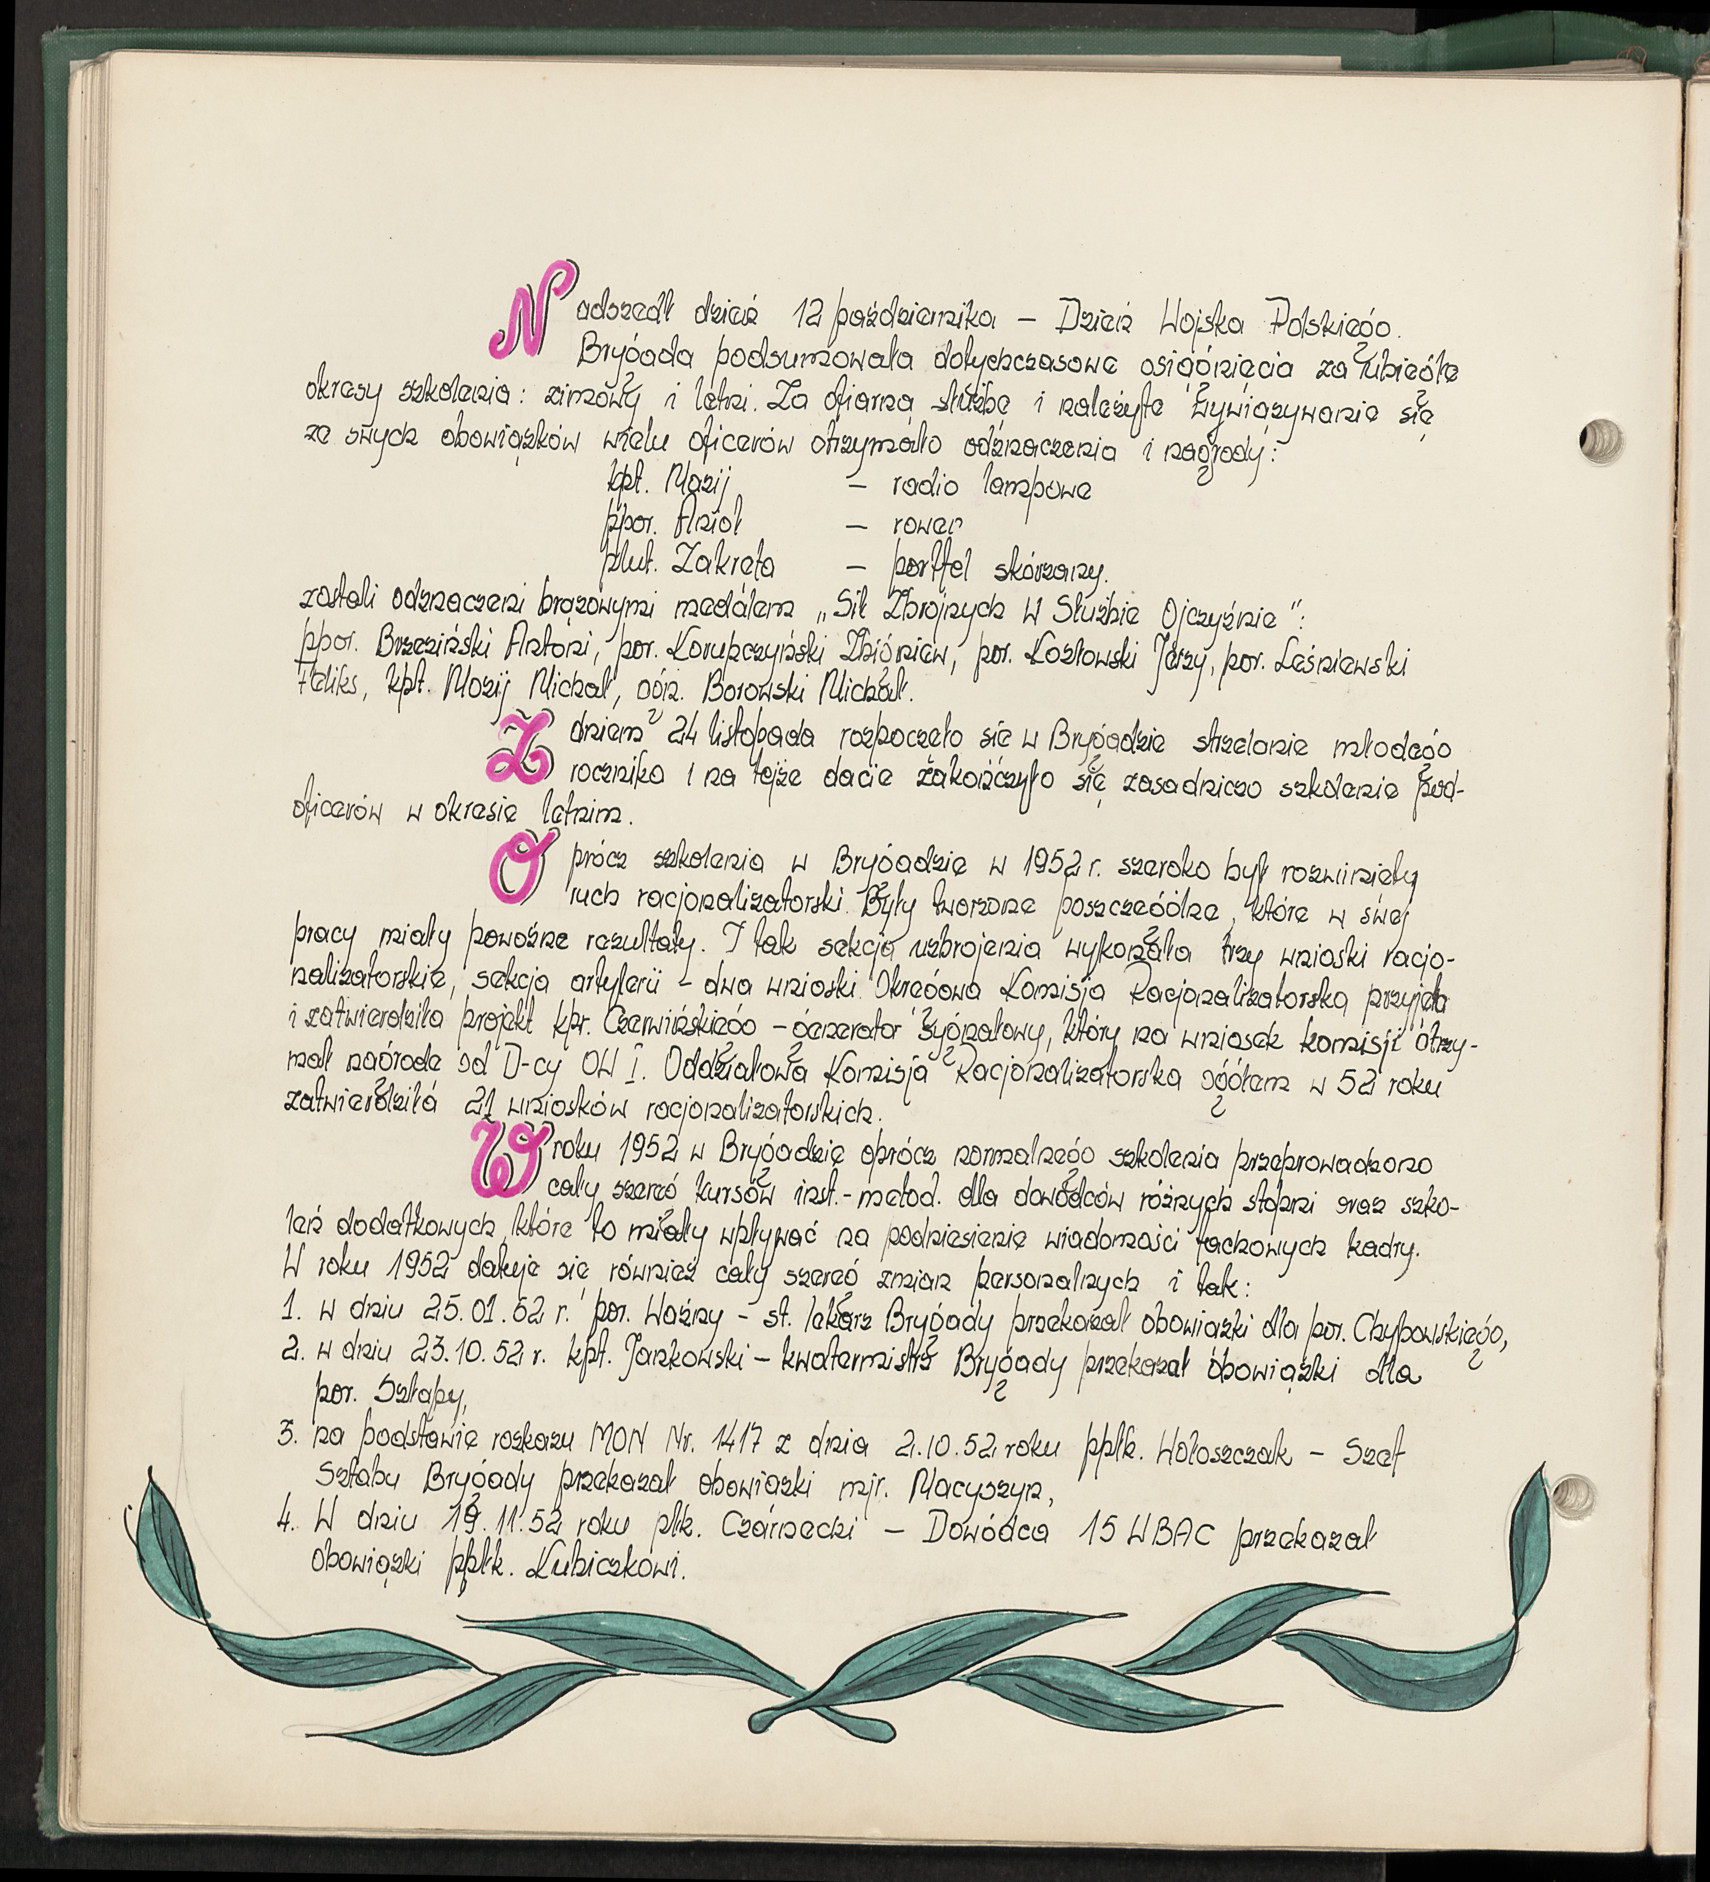 Nadszedł dzień 12 października – Dzień Wojska Polskiego.
Brygada podsumowała dotychczasowe osiągnięcia za ubiegłe
okresy szkolenia: zimowy i letni. Za ofiarną służbę i należyte wywiązywanie się
ze swych obowiązków wielu oficerów otrzymało odznaczenia i nagrody:
kpt. Mazij – radio lampowe
ppor. Anioł – rower
plut. Zakręta – portfel skórzany.
zostali odznaczeni brązowymi medalem „Sił Zbrojnych W Służbie Ojczyźnie":
ppor. Brzeziński Antoni, por. Korupczyński Zbigniew, por. Kozłowski Jerzy, por. Leśniewski
Feliks, kpt. Mozij Michał, ogn. Borowski Michał.
Z dniem 24 listopada rozpoczęto się w Brygadzie strzelanie młodego
rocznika i na tejże dacie zakończyło się zasadniczo szkolenie pod-
oficerów w okresie letnim.
Oprócz szkolenia w Brygadzie w 1952 r. szeroko był rozwinięty
ruch racjonalizatorski. Były tworzone poszczególne, które w swej
pracy miały poważne rezultaty. I tak sekcja uzbrojenia wykonała trzy wnioski racjo-
nalizatorskie, sekcja artylerii – dwa wnioski. Okręgowa Komisja Racjonalizatorska przyjęła
i zatwierdziła projekt kpr. Czerwińskiego – generator sygnałowy, który na wniosek komisji otrzy-
mał nagrodę od D-cy OW I. Oddziałowa Komisja Racjonalizatorska ogółem w 52 roku
zatwierdziła 21 wniosków racjonalizatorskich.
W roku 1952 w Brygadzie oprócz normalnego szkolenia przeprowadzono
cały szereg kursów inst.-metod. dla dowódców różnych stopni oraz szko-
leń dodatkowych, które to miały wpływać na podniesienie wiadomości fachowych kadry.
W roku 1952 datuje się również cały szereg zmian personalnych i tak:
1. w dniu 25.01.52 r. por. Ważny – st. lekarz Brygady przekazał obowiązki dla por. Chybowskiego,
2. w dniu 23.10.52 r. kpt. Jankowski – kwatermistrz Brygady przekazał obowiązki dla
por. Sztapy,
3. na podstawie rozkazu MON Nr. 1417 z dnia 2.10.52 roku ppłk. Wołoszczak – Szef
Sztabu Brygady przekazał obowiązki mjr. Macyszyn,
4. W dniu 19.11.52 roku płk. Czarnecki – Dowódca 15 WBAC przekazał
obowiązki ppłk. Kubiczkowi.